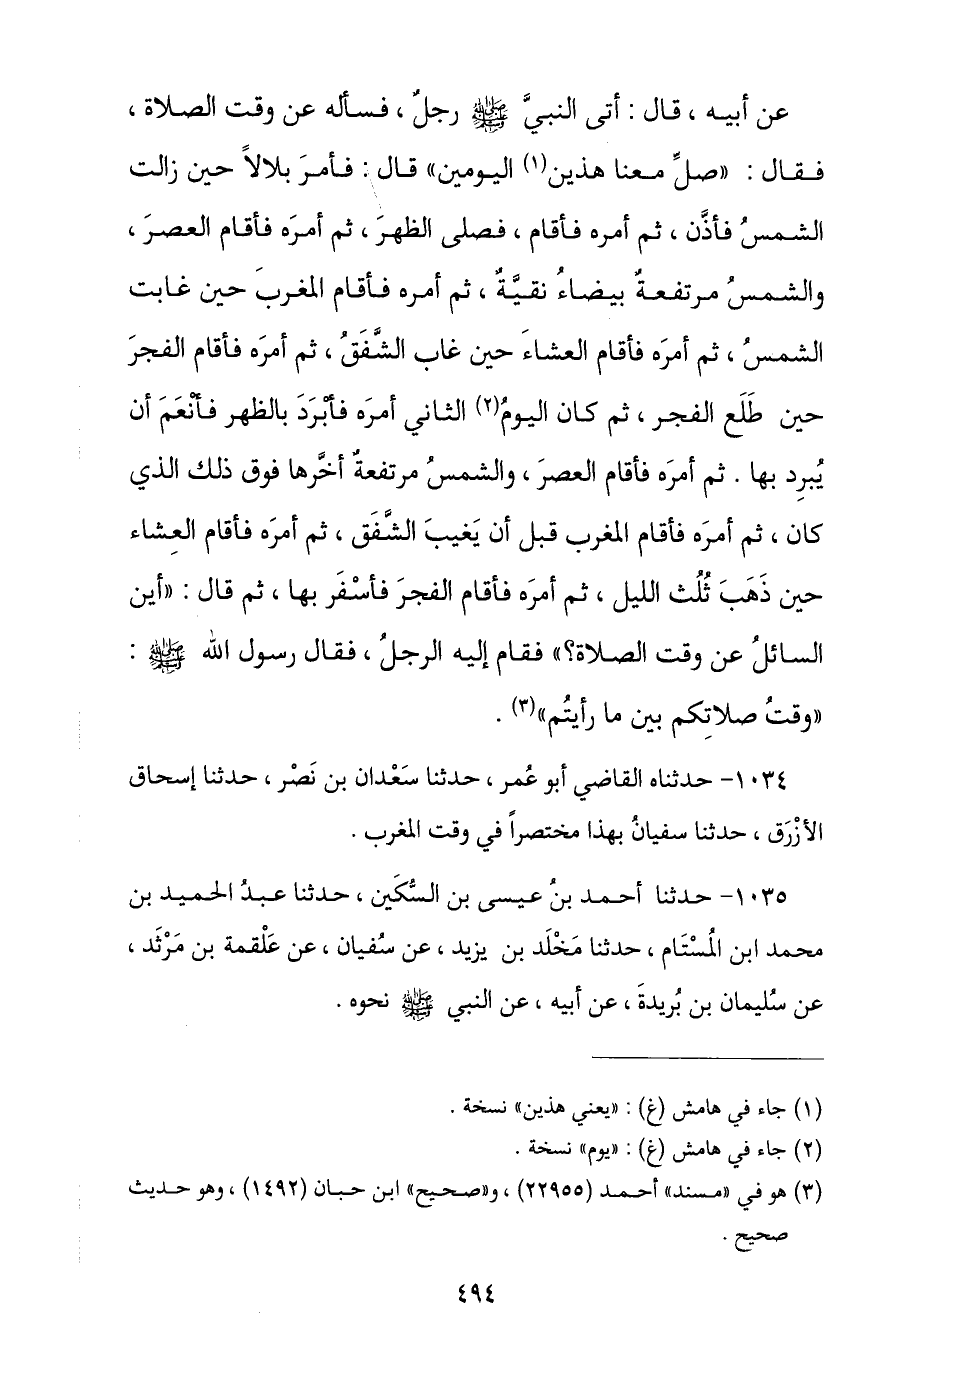 عن أبيه ، قال : أتى النبيَّ ﷺ رجلٌ ، فسأله عن وقت الصلاة ،
فقال : «صلِّ معنا هذين(١) اليومين» قال : فأمرَ بلالاً حين زالت
الشمسُ فأذَّن ، ثم أمره فأقام ، فصلى الظهرَ ، ثم أمرَه فأقام العصرَ ،
والشمسُ مرتفعةٌ بيضاءُ نقيَّةٌ ، ثم أمره فأقام المغربَ حين غابت
الشمسُ ، ثم أمرَه فأقام العشاءَ حين غاب الشَّفَقُ ، ثم أمرَه فأقام الفجرَ
حين طَلَع الفجر ، ثم كان اليومُ(٢) الثاني أمرَه فأبْرَدَ بالظهر فأنْعَمَ أن
يُبرِد بها . ثم أمرَه فأقام العصرَ ، والشمسُ مرتفعةٌ أخَّرها فوق ذلك الذي
كان ، ثم أمرَه فأقام المغرب قبل أن يَغيبَ الشَّفَق ، ثم أمرَه فأقام العِشاء
حين ذَهَبَ ثُلُث الليل ، ثم أمرَه فأقام الفجرَ فأسْفَر بها ، ثم قال : «أين
السائلُ عن وقت الصلاة؟» فقام إليه الرجلُ ، فقال رسول الله ﷺ :
«وقتُ صلاتِكم بين ما رأيتُم»(٣) .
١٠٣٤- حدثناه القاضي أبو عُمر ، حدثنا سَعْدان بن نَصْر ، حدثنا إسحاق
الأزْرَق ، حدثنا سفيانُ بهذا مختصراً في وقت المغرب .
١٠٣٥- حدثنا أحمد بنُ عيسى بن السُّكَين ، حدثنا عبدُ الحميد بن
محمد ابن المُسْتَام ، حدثنا مَخْلَد بن يزيد ، عن سُفيان ، عن عَلْقمة بن مَرْثَد ،
عن سُليمان بن بُريدةَ ، عن أبيه ، عن النبي ﷺ نحوه .
(١) جاء في هامش (غ) : «يعني هذين» نسخة .
(٢) جاء في هامش (غ) : «يوم» نسخة .
(٣) هو في «مسند» أحمد (٢٢٩٥٥) ، و«صحيح» ابن حبان (١٤٩٢) ، وهو حديث
صحيح .
٤٩٤